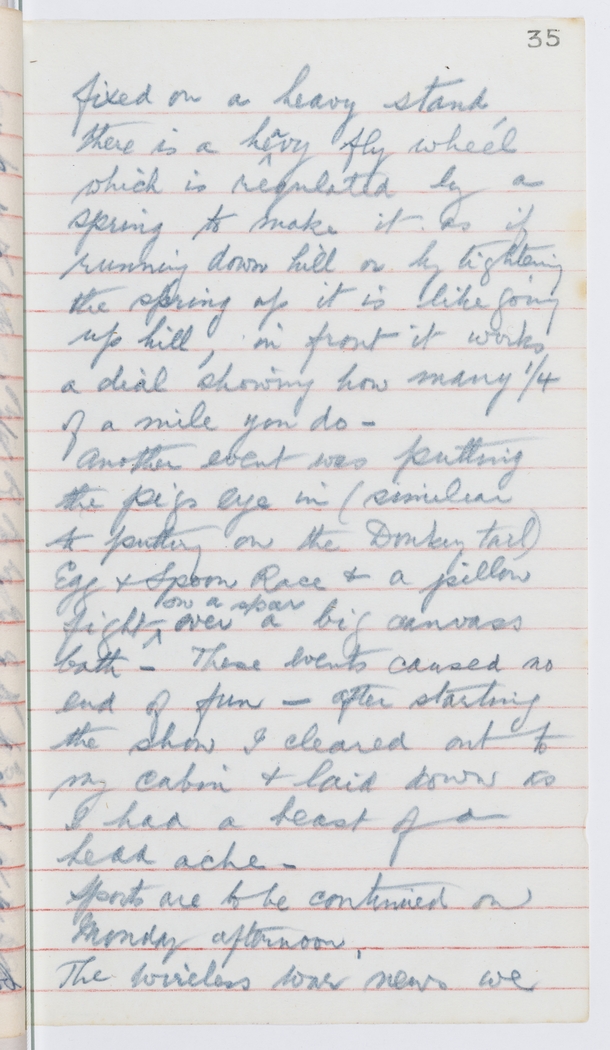 35
fixed on a heavy stand,
there is a hevy fly wheel
which is regulated by a
spring to make it as if
running down hill or by tightening
the spring up it is like going
up hill, in front it works
a dial showing how many 1/4
of a mile you do -
Another event was putting
the pigs eye in (similear
to putting on the Donkey tail)
Egg & Spoon Race & a pillow
on a spar
fight over a big canvass
bath - These events caused no
end of fun - after starting
the show I cleared out to
my cabin & laid down as
I had a beast of a
head ache -
Sports are to be continued on
Monday afternoon,
The wireless war news we